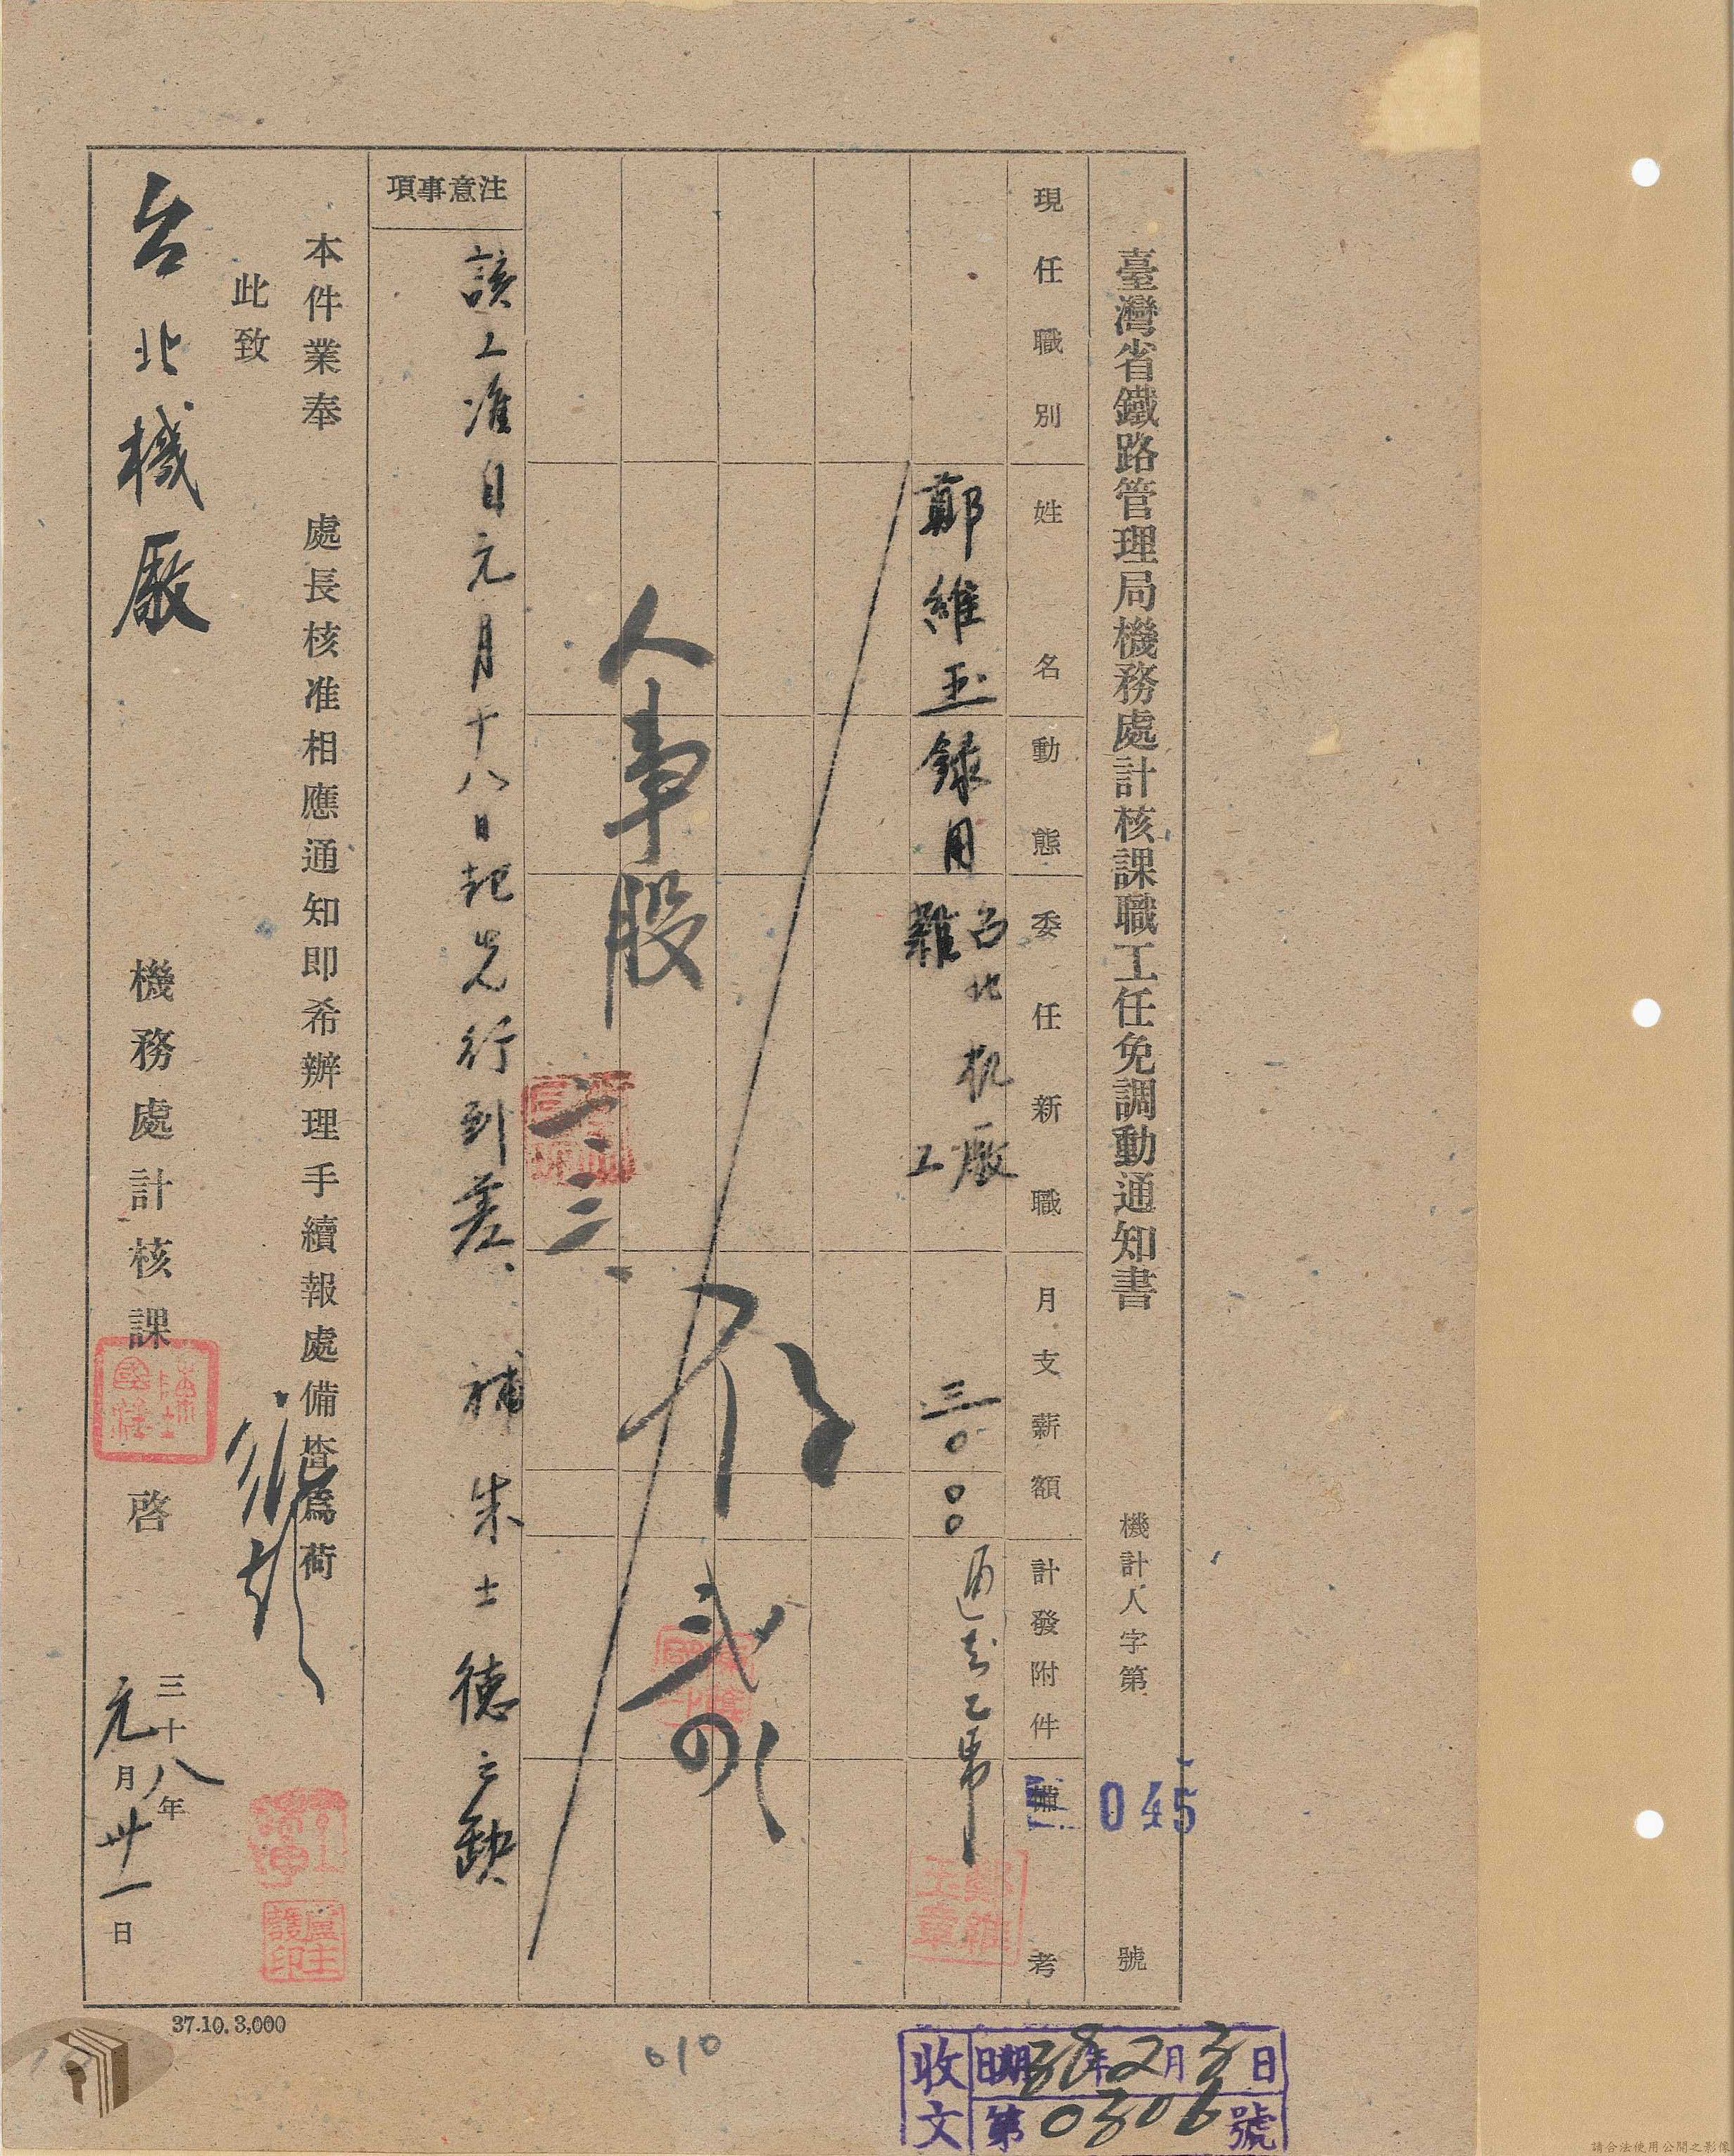 臺灣省鐵路管理局機務處計核課職工任免調動通知書
機計人字第 045 號
現任職別 姓名 動態 委任新職 月支薪額 計發附件 備考
鄭維玉 錄用 台北机廠 雜工 三〇.〇〇 通知乙帋
鄭維玉章
人事股
二.三.
注意事項
該工准自元月十八日起先行到差. 補朱士德之缺
本件業奉 處長核准相應通知即希辦理手續報處備查爲荷
此致
台北機廠
機務處計核課 啓
三十八年元月卅一日
37.10.3,000
010
收文 日期38年2月3日
第0306號
請合法使用公開之影像